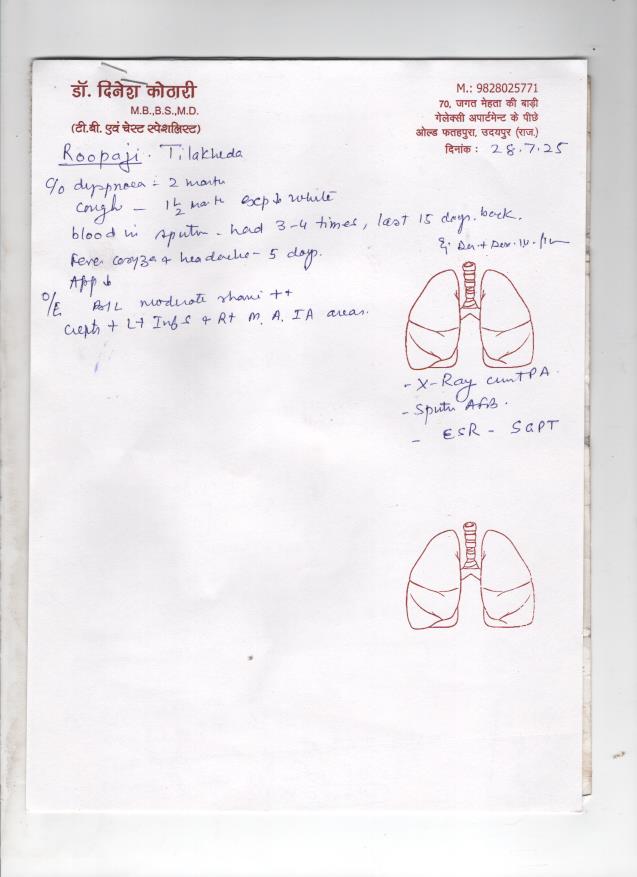 डॉ. दिनेश कोठारी
M.B.,B.S.,M.D.
(टी.बी. एवं चेस्ट स्पेशलिस्ट)
M.: 9828025771
70, जगत मेहता की बाड़ी
गेलेक्सी अपार्टमेन्ट के पीछे
ओल्ड फतहपुरा, उदयपुर (राज.)
दिनांक : 28.7.25
Roopaji. Tilakheda
C/o dyspnoea - 2 month
Cough - 1 1/2 month exp ↓ white
blood in sputm - had 3-4 times, last 15 days back.
Fever coryza + headache - 5 days.
App ↓
O/E B/L moderate ++
Crepts + Lt Infs + Rt M. A, IA areas.
- X-Ray PA
- Sputm AFB.
- ESR - SGPT